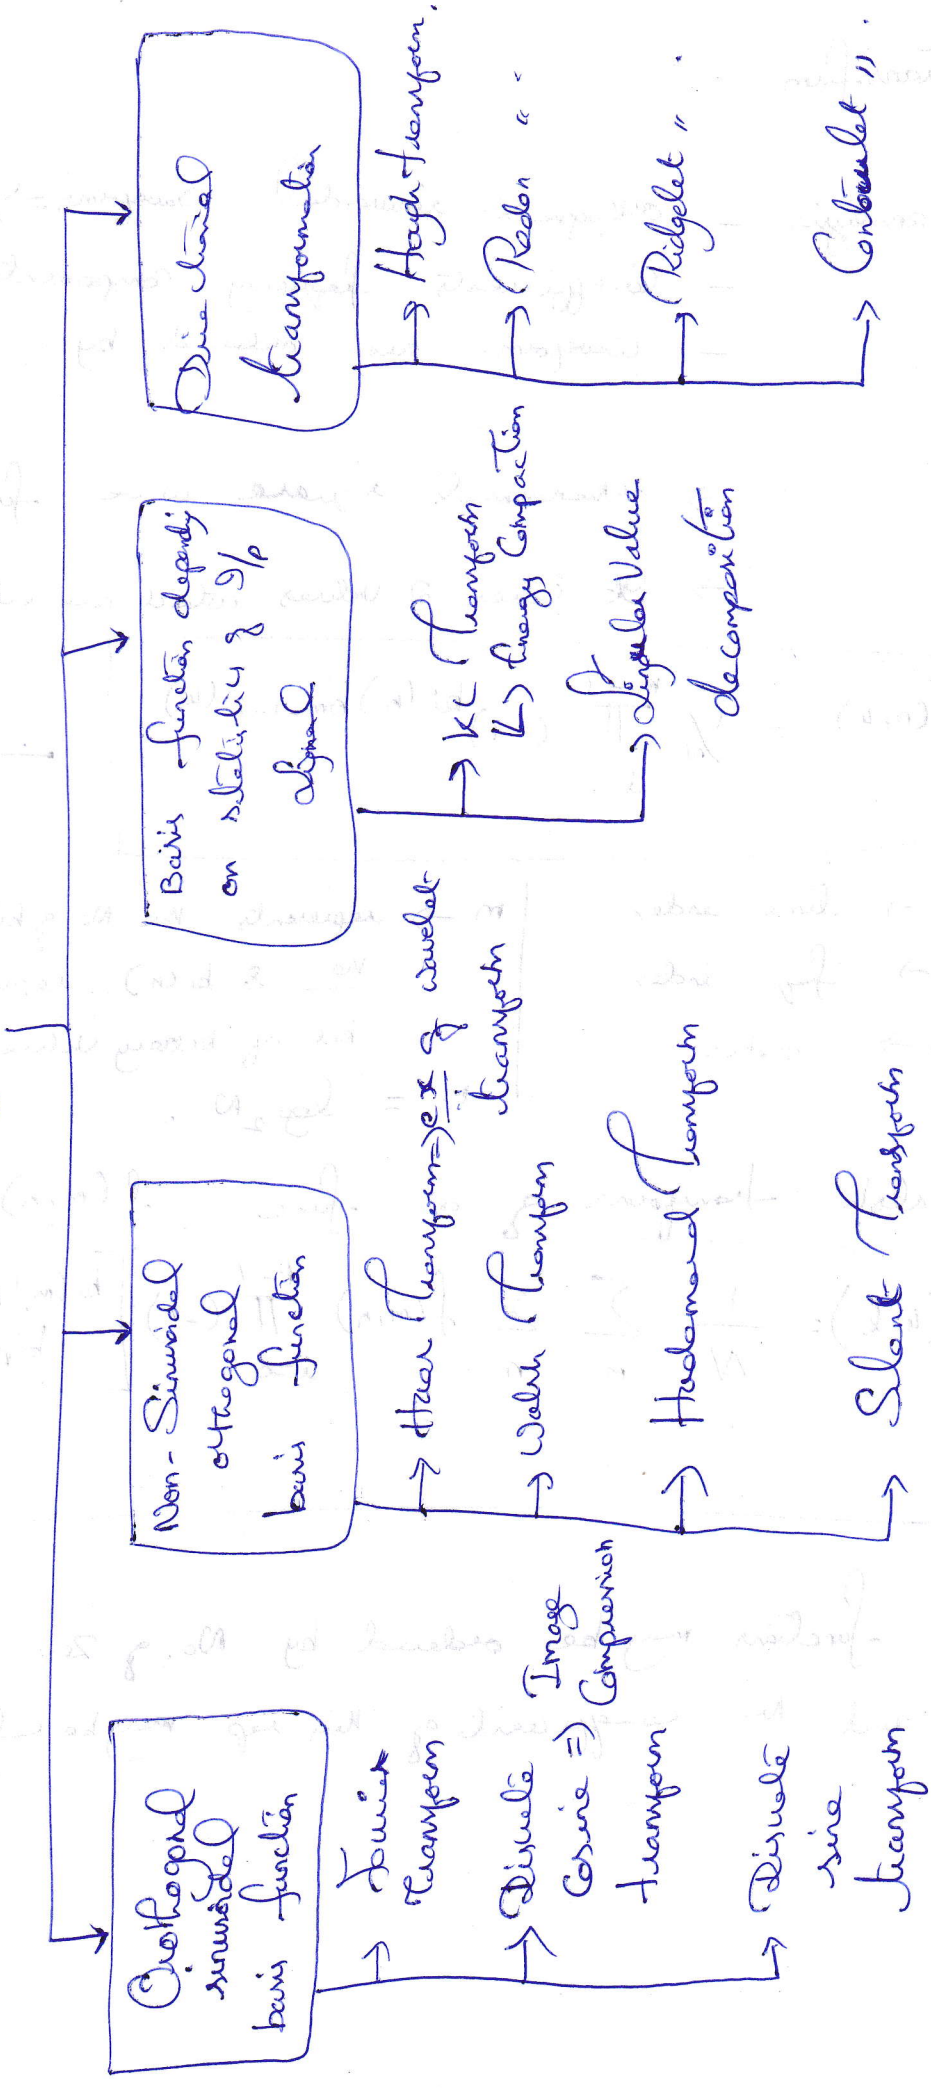 Orothogonal
sinusoidal
basis function
Fourier
Transform
Discrete
Cosine => Image
Compression
transform
Discrete
sine
transform
Non-Sinusoidal
orthogonal
basis function
Haar Transform => ex of wavelet
transform
Walsh Transform
Hadamard Transform
Slant Transform
Basis function depends
on statistics of I/p
signal
KL Transform
↳ Energy Compaction
Singular Value
decomposition
Directional
transformation
Hough transform.
Radon " .
Ridgelet " .
Contourlet " .